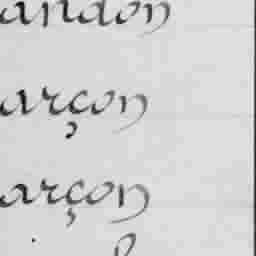 andon
arçon
arçon